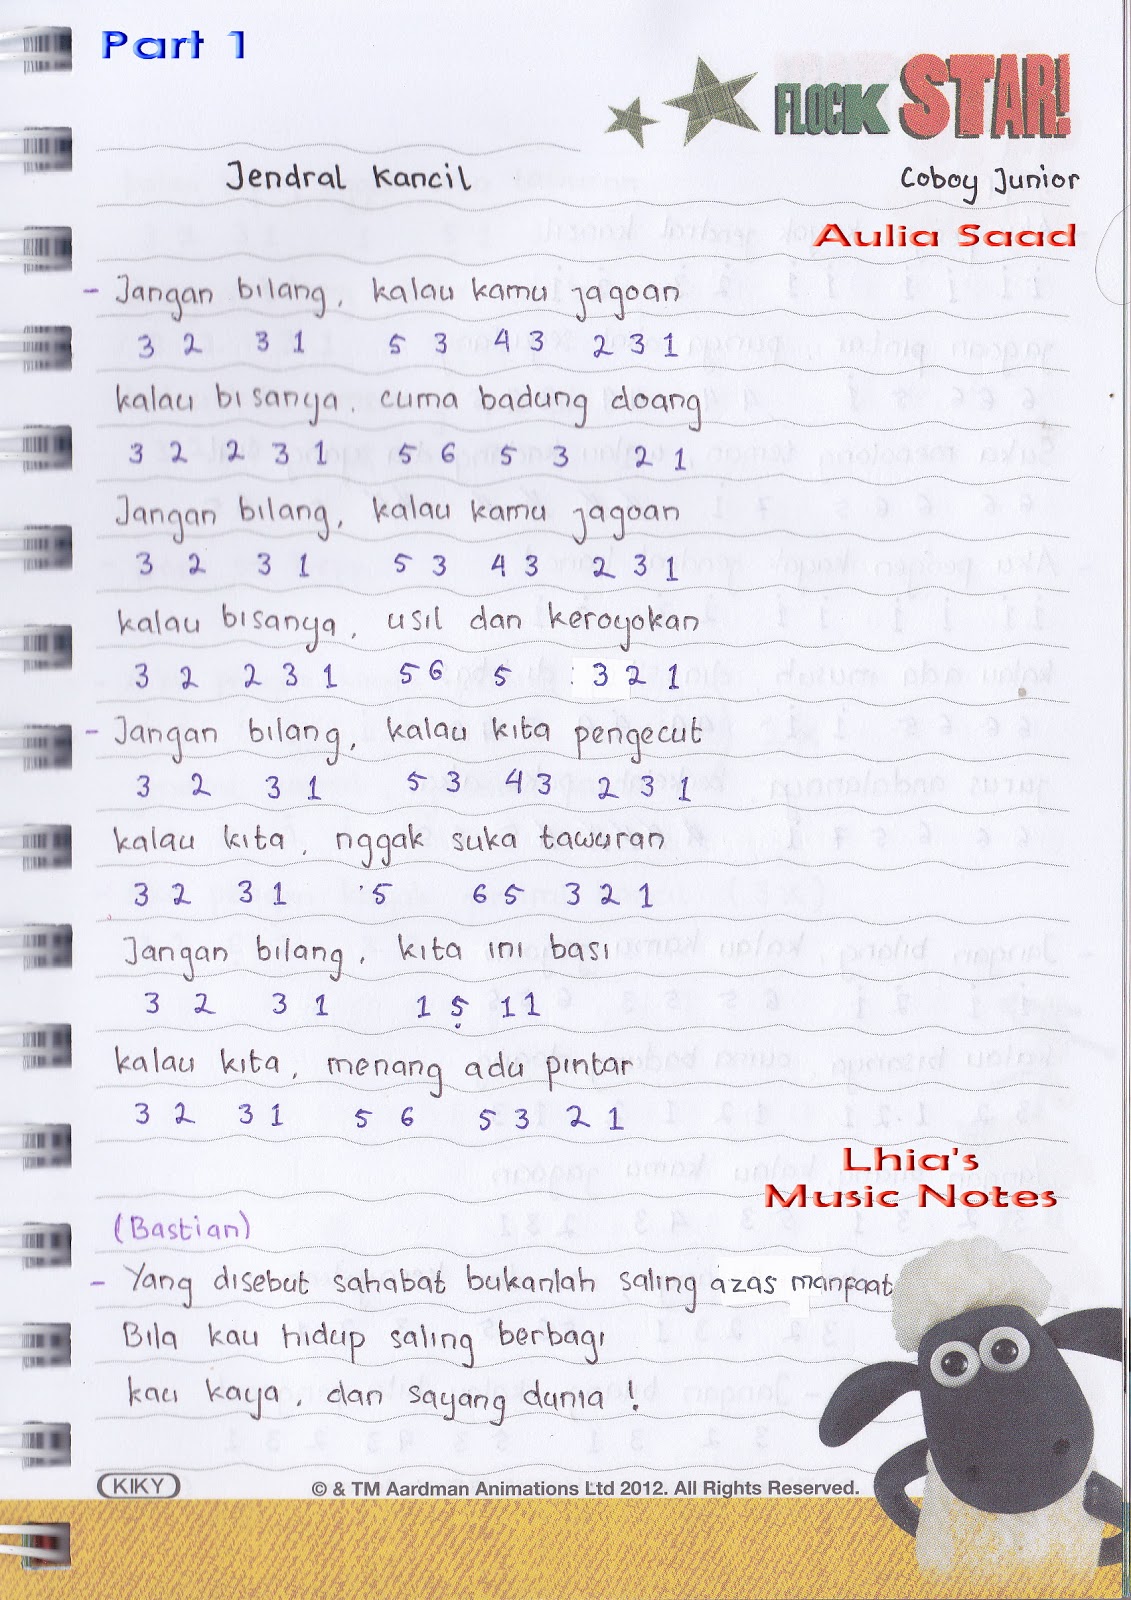 Part 1
FLOCK STAR!
Jendral Kancil Coboy Junior
Aulia Saad
- Jangan bilang, kalau kamu jagoan
3 2 3 1 5 3 4 3 2 3 1
kalau bisanya, cuma badung doang
3 2 2 3 1 5 6 5 3 2 1
Jangan bilang, kalau kamu jagoan
3 2 3 1 5 3 4 3 2 3 1
kalau bisanya, usil dan keroyokan
3 2 2 3 1 5 6 5 3 2 1
- Jangan bilang, kalau kita pengecut
3 2 3 1 5 3 4 3 2 3 1
kalau kita, nggak suka tawuran
3 2 3 1 5 6 5 3 2 1
Jangan bilang, kita ini basi
3 2 3 1 1 5̣ 1 1
kalau kita, menang adu pintar
3 2 3 1 5 6 5 3 2 1
Lhia's
Music Notes
(Bastian)
- Yang disebut sahabat bukanlah saling azas manfaat
Bila kau hidup saling berbagi
kau kaya, dan sayang dunia !
KIKY
© & TM Aardman Animations Ltd 2012. All Rights Reserved.